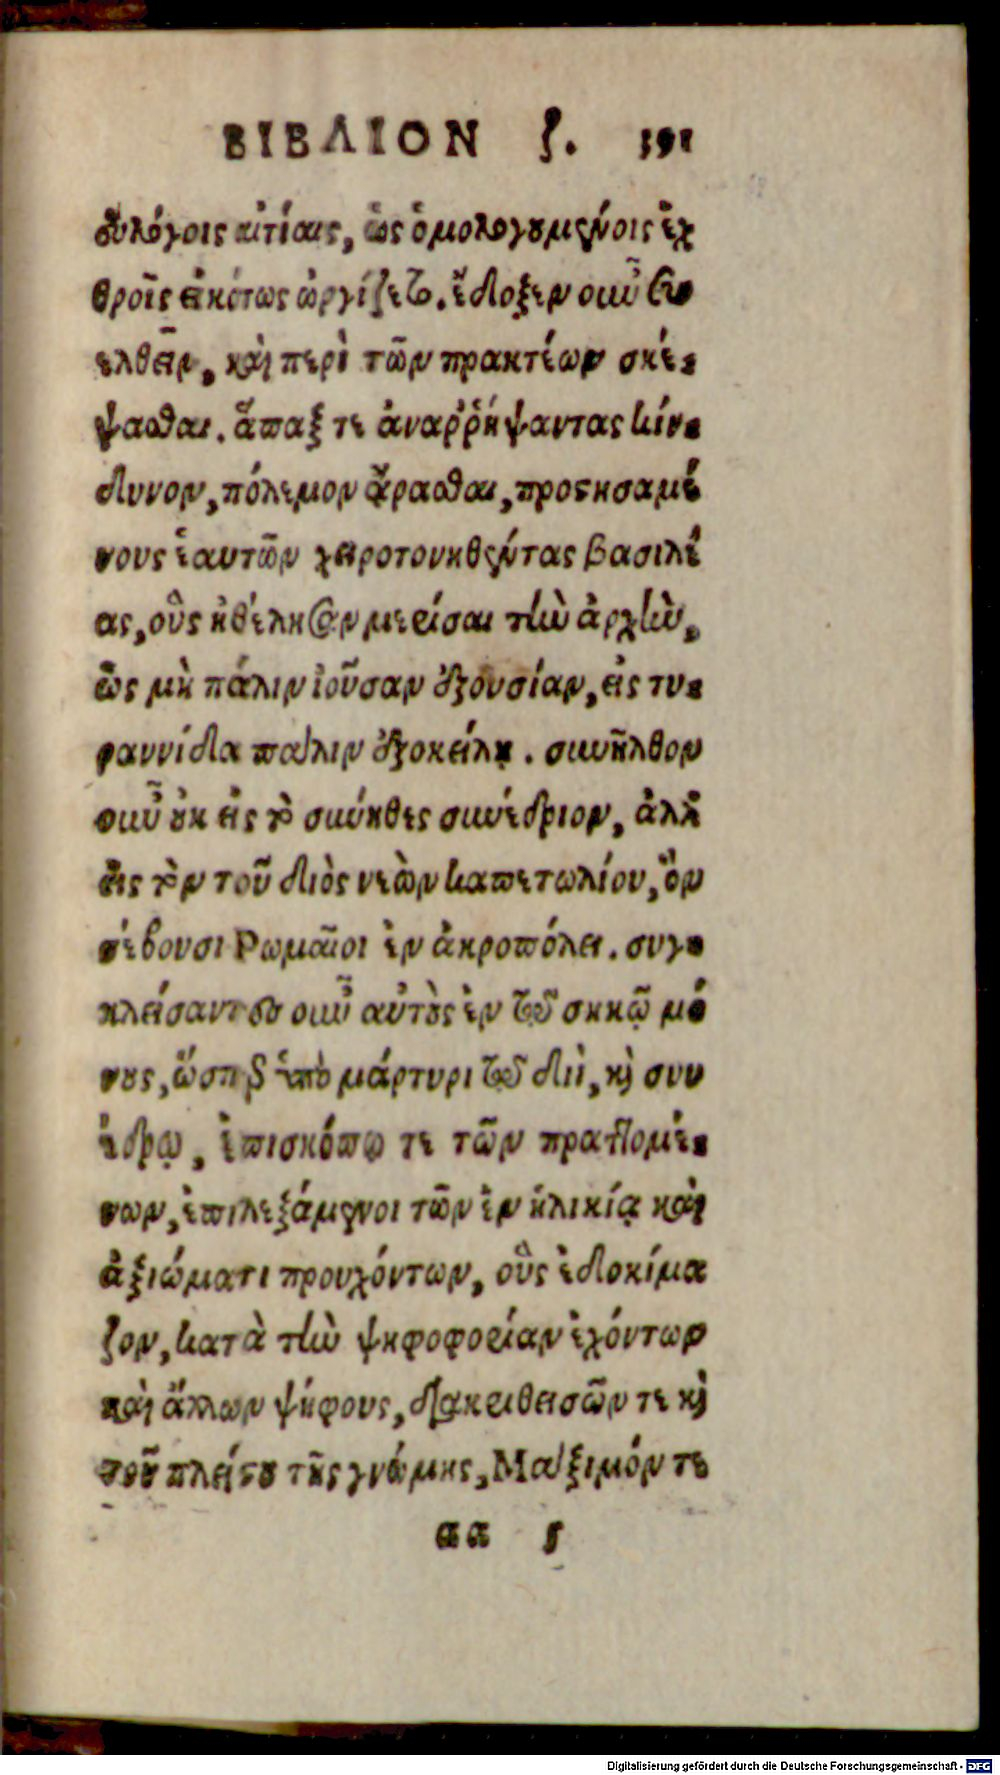 ΒΙΒΛΙΟΝ ζ. 191
ευλόγοις αἰτίαις, ὡς ὁμολογουμένοις ἐχ
θροῖς εἰκότως ὠργίζετο. ἔδοξεν οὖν συν
ελθεῖν, καὶ περὶ τῶν πρακτέων σκέ-
ψασθαι. ἅπαξ τε ἀναῤῥίψαντας κίν-
δυνον, πόλεμον ἄρασθαι, προστησαμέ
νους ἑαυτῶν χειροτονηθέντας βασιλέ
ας, οὓς ἠθέλησαν μερίσαι τὴν ἀρχὴν,
ὡς μὴ πάλιν ἰοῦσαν ἐξουσίαν, εἰς τυ-
ραννίδα πάλιν ἐξοκείλῃ. συνῆλθον
οὖν οὐκ εἰς τὸ σύνηθες συνέδριον, ἀλλ
εἰς τὸν τοῦ διὸς νεὼν καπετωλίου, ὃν
σέβουσι Ρωμαῖοι ἐν ἀκροπόλει. συγ-
κλείσαντες οὖν αὑτοὺς ἐν τῷ σηκῷ μό
νους, ὥσπερ ὑπὸ μάρτυρι τῷ διῒ, καὶ συν
έδρῳ, ἐπισκόπῳ τε τῶν πραττομέ-
νων, ἐπιλεξάμενοι τῶν ἐν ἡλικίᾳ καὶ
ἀξιώματι προυχόντων, οὓς ἐδοκίμα
ζον, κατὰ τὴν ψηφοφορίαν ἐχόντων
καὶ ἄλλων ψήφους, διακριθεισῶν τε καὶ
τοῦ πλείστου τῆς γνώμης, Μάξιμόν τε
aa 5
Digitalisierung gefördert durch die Deutsche Forschungsgemeinschaft - DFG